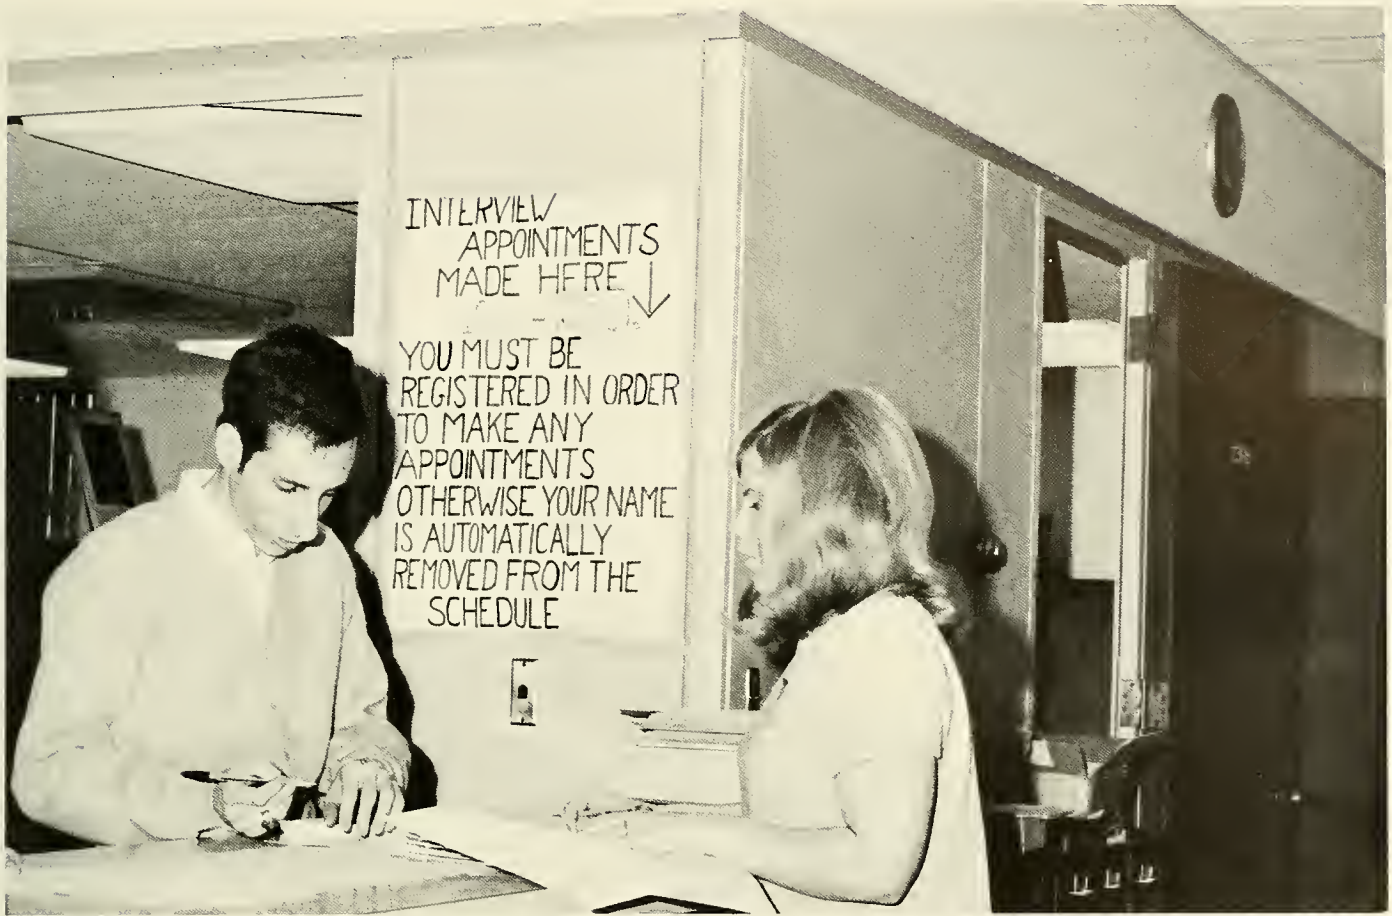 INTERVIEW
APPOINTMENTS
MADE HERE
YOU MUST BE
REGISTERED IN ORDER
TO MAKE ANY
APPOINTMENTS
OTHERWISE YOUR NAME
IS AUTOMATICALLY
REMOVED FROM THE
SCHEDULE